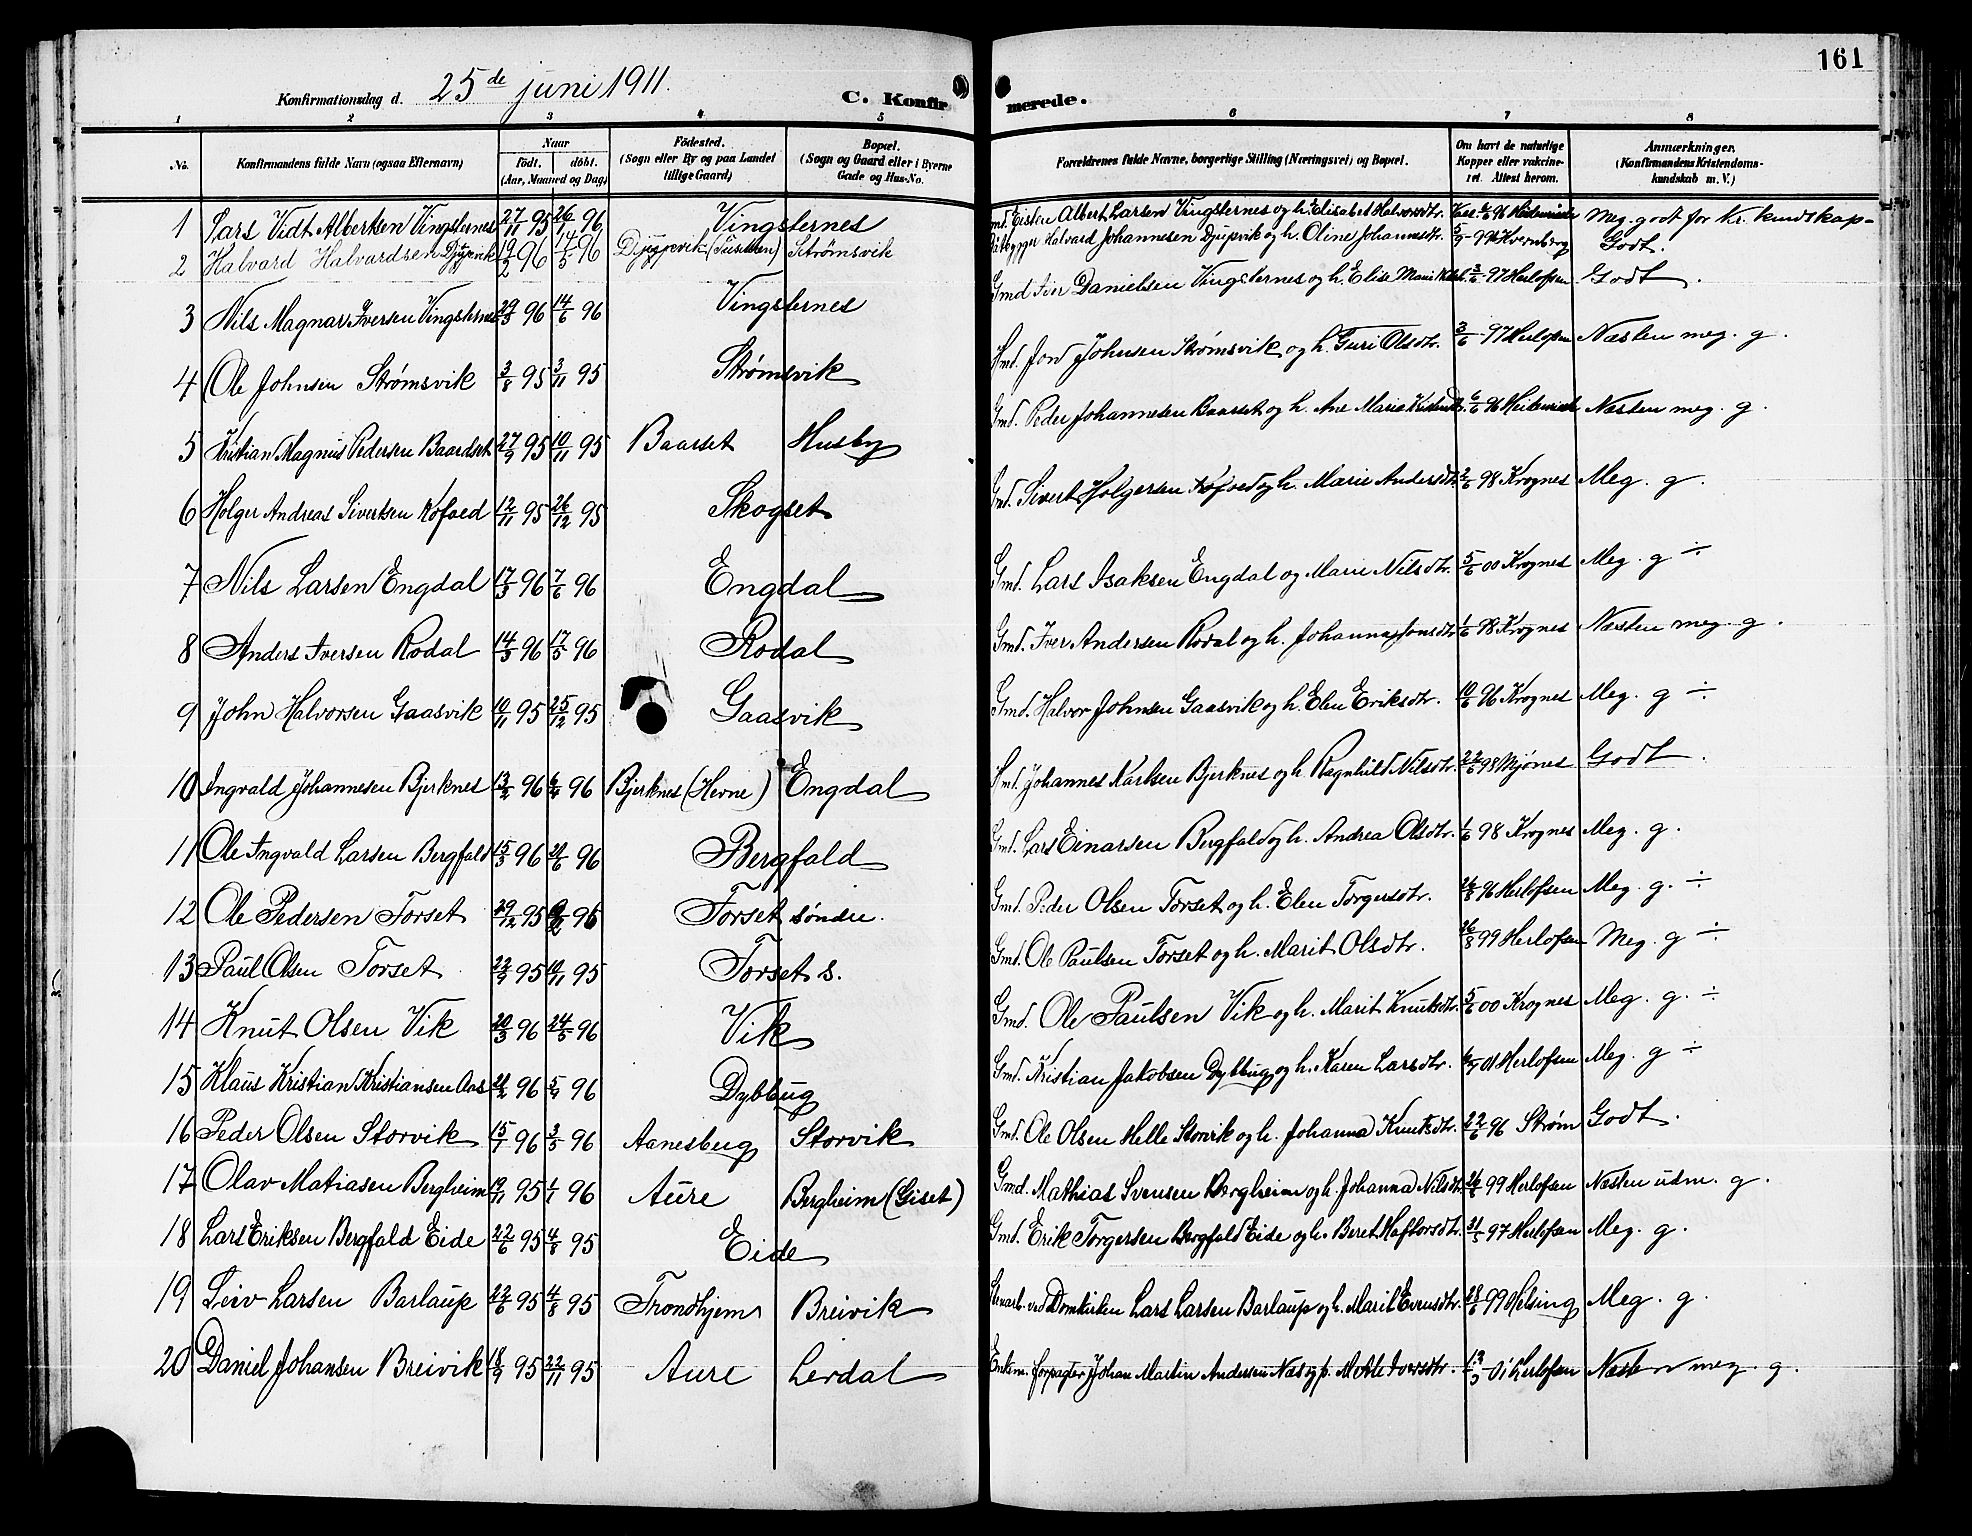 161
Konfirmationsdag d. 25de juni 1911. C. Konfirmerede.
1 2 3 4 5 6 7 8
No. Konfirmandens fulde Navn (ogsaa Efternavn) Naar født. døbt. (Aar, Maaned og Dag) Födested. (Sogn eller By og paa Landet tillige Gaard) Bopæl. (Sogn og Gaard eller i Byerne Gade og Hus-No. Forældrenes fulde Navne, borgerlige Stilling (Næringsvei) og Bopæl. Om havt de naturlige Kopper eller vakcineret. Attest herom. Anmærkninger. (Konfirmandens Kristendomskundskab m. V.)
1 Lars Vidt Albertsen Vingsternes 27/11 95 26/1 96 Vingsternes Albert Larsen Vingsternes og h. Elisabet Halvorsdtr. Meg. godt for Kr. kundskap-
2 Halvard Halvardsen Djupvik 19/2 96 14/5 96 Djupvik (Tustern) Strømsvik Halvard Johannesen Djupvik og h. Oline Johannsdtr. Kvernberg Godt.
3 Nils Magnar Iversen Vingsternes 29/3 96 14/6 96 Vingsternes Gmd Iver Danielsen Vingsternes og h. Elise Marie 3/6 97 Herlofsen Godt.
4 Ole Johnsen Strømsvik 3/8 95 3/11 95 Strømsvik Hmd. Jon Johnsen Strømsvik og h. Guri Olsdtr. 3/6 97 Herlofsen Næsten meg. g.
5 Kristian Magnus Pedersen Baardset 27/9 95 10/11 95 Baarset Husby Gmd. Peder Johannesen Baarset og h. Ane Maria 6/6 96 Næsten meg. g.
6 Holger Andreas Sivertsen Kofoed 12/11 95 26/12 95 Skogset Gmd. Sivert Holgersen Kofoed og h. Marie Andersdtr. 2/6 98 Krognes Meg. g.
7 Nils Larsen Engdal 17/3 96 7/6 96 Engdal Gmd. Lars Isaksen Engdal og Marie Nilsdtr. 5/6 00 Krognes Meg. g ÷
8 Anders Iversen Rodal 14/3 96 17/5 96 Rodal Gmd. Iver Andersen Rodal og h. Johanna Jonsdtr. 1/6 98 Krognes Næsten meg. g.
9 John Halvorsen Gaasvik 10/11 95 25/12 95 Gaasvik Gmd. Halvor Johnsen Gaasvik og h. Elen Eriksdtr. 10/6 96 Krognes Meg. g ÷
10 Ingvald Johannesen Bjerknes 13/2 96 6/4 96 Bjerknes (Hevne) Engdal Hmd. Johannes Karlsen Bjerknes og h. Ragnhild Nilsdtr. 22/6 98 Mjønes Godt.
11 Ole Ingvald Larsen Bergfald 15/3 96 21/6 96 Bergfald Gmd. Lars Einarsen Bergfald og h. Andrea Olsdtr. 1/6 98 Krognes Meg. g.
12 Ole Pedersen Torset 29/12 95 96 Torset søndre. Gmd. Peder Olsen Torset og h. Elen Torgersdtr. 96 Herlofsen Meg. g. ÷
13 Paul Olsen Torset 22/9 95 10/11 95 Torset s. Gmd. Ole Paulsen Torset og h. Marit Olsdtr. 26/8 99 Herlofsen Meg. g ÷
14 Knut Olsen Vik 20/3 96 24/5 96 Vik Gmd. Ole Paulsen Vik og h. Marit Knutsdtr. 5/6 00 Krognes Meg. g. ÷
15 Klaus Kristian Kristiansen Aas 21/2 96 5/4 96 Dybbug Gmd. Kristian Jakobsen Dybbug og h. Karen Larsdtr. 01 Herlofsen Meg. g ÷
16 Peder Olsen Storvik 15/1 96 3/5 96 Aanesberg Storvik Gmd. Ole Olsen Helle Storvik og h. Johanna Knutsdtr. 22/6 96 Strøm Godt.
17 Olav Matiasen Bergheim 19/11 95 1/1 96 Aure Bergheim (Giset) Gmd. Mathias Svensen Bergheim og h. Johanna Nilsdtr. 99 Herlofsen Næsten udm. g.
18 Lars Eriksen Bergfald Eide 22/6 95 4/8 95 Eide Gmd. Erik Torgersen Bergfald Eide og h. Beret Haftorsdtr. 31/5 97 Herlofsen Meg. g.
19 Leiv Larsen Barlaup 22/6 95 4/8 95 Trondhjem Breivik Stenarb. ved Domkirken Lars Larsen Barlaup og h. Marit Evensdtr. 28/6 99 Helsing Meg. g.
20 Daniel Johansen Breivik 18/9 95 22/11 95 Aure Lerdal Enkem. forpagter Johan Martin Andersen Næs 01 Herlofsen Næsten meg. g.